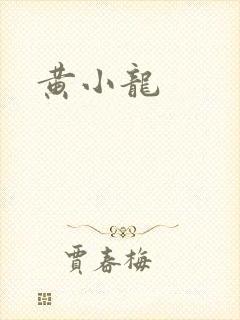 黄小龍
賈春梅